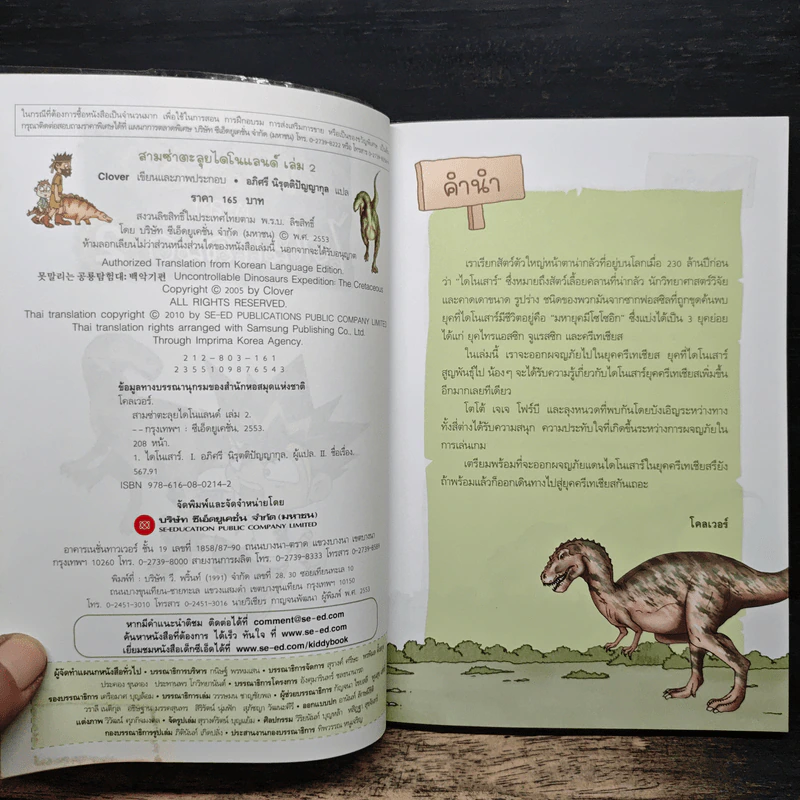 ในกรณีที่ต้องการซื้อหนังสือเป็นจำนวนมาก เพื่อใช้ในการสอน การฝึกอบรม การส่งเสริมการขาย หรือเป็นของขวัญพิเศษ
กรุณาติดต่อสอบถามราคาพิเศษได้ที่ แผนกการตลาดพิเศษ บริษัท ซีเอ็ดยูเคชั่น จำกัด (มหาชน) โทร. 0-2739-8222 หรือ โทรสาร
สามซ่าตะลุยไดโนแลนด์ เล่ม 2
Clover เขียนและภาพประกอบ • อภิศรี นิรุตติปัญญากุล แปล
ราคา 165 บาท
สงวนลิขสิทธิ์ในประเทศไทยตาม พ.ร.บ. ลิขสิทธิ์
โดย บริษัท ซีเอ็ดยูเคชั่น จำกัด (มหาชน) © พ.ศ. 2553
ห้ามลอกเลียนไม่ว่าส่วนหนึ่งส่วนใดของหนังสือเล่มนี้ นอกจากจะได้รับอนุญาต
Authorized Translation from Korean Language Edition.
못말리는 공룡탐험대: 백악기편 Uncontrollable Dinosaurs Expedition: The Cretaceous
Copyright © 2005 by Clover
ALL RIGHTS RESERVED.
Thai translation copyright © 2010 by SE-ED PUBLICATIONS PUBLIC COMPANY LIMITED
Thai translation rights arranged with Samsung Publishing Co., Ltd.
Through Imprima Korea Agency.
212-803-161
23551098876543
ข้อมูลทางบรรณานุกรมของสำนักหอสมุดแห่งชาติ
โคลเวอร์.
สามซ่าตะลุยไดโนแลนด์ เล่ม 2.
--กรุงเทพฯ : ซีเอ็ดยูเคชั่น, 2553.
208 หน้า.
1. ไดโนเสาร์. I. อภิศรี นิรุตติปัญญากุล, ผู้แปล. II. ชื่อเรื่อง.
567.91
ISBN 978-616-08-0214-2
จัดพิมพ์และจัดจำหน่ายโดย
บริษัท ซีเอ็ดยูเคชั่น จำกัด (มหาชน)
SE-EDUCATION PUBLIC COMPANY LIMITED
อาคารเนชั่นทาวเวอร์ ชั้น 19 เลขที่ 1858/87-90 ถนนบางนา-ตราด แขวงบางนา เขตบางนา
กรุงเทพฯ 10260 โทร. 0-2739-8000 สายงานการผลิต โทร. 0-2739-8333 โทรสาร 0-2739-8589
พิมพ์ที่ : บริษัท วี. พริ้นท์ (1991) จำกัด เลขที่ 28, 30 ซอยเทียนทะเล 10
ถนนบางขุนเทียน-ชายทะเล แขวงแสมดำ เขตบางขุนเทียน กรุงเทพฯ 10150
โทร. 0-2451-3010 โทรสาร 0-2451-3016 นายวิเชียร กาญจนพัฒนา ผู้พิมพ์ พ.ศ. 2553
หากมีคำแนะนำติชม ติดต่อได้ที่ comment@se-ed.com
ค้นหาหนังสือที่ต้องการ ได้เร็ว ทันใจ ที่ www.se-ed.com
เยี่ยมชมหนังสือเด็กซีเอ็ดได้ที่ www.se-ed.com/kiddybook
ผู้จัดทำแผนกหนังสือทั่วไป • บรรณาธิการบริหาร • บรรณาธิการจัดการ
• บรรณาธิการโครงการ
ของบรรณาธิการ • บรรณาธิการเล่ม • ผู้ช่วยบรรณาธิการ
• ออกแบบปก
แต่งภาพ • จัดรูปเล่ม • ศิลปกรรม
กองบรรณาธิการรูปเล่ม • ประสานงานกองบรรณาธิการ
คำนำ
เราเรียกสัตว์ตัวใหญ่หน้าตาน่ากลัวที่อยู่บนโลกเมื่อ 230 ล้านปีก่อน
ว่า "ไดโนเสาร์" ซึ่งหมายถึงสัตว์เลื้อยคลานที่น่ากลัว นักวิทยาศาสตร์วิจัย
และคาดเดาขนาด รูปร่าง ชนิดของพวกมันจากซากฟอสซิลที่ถูกขุดค้นพบ
ยุคที่ไดโนเสาร์มีชีวิตอยู่คือ "มหายุคมีโซโซอิก" ซึ่งแบ่งได้เป็น 3 ยุคย่อย
ได้แก่ ยุคไทรแอสซิก จูแรสซิก และครีเทเชียส
ในเล่มนี้ เราจะออกผจญภัยไปในยุคครีเทเชียส ยุคที่ไดโนเสาร์
สูญพันธุ์ไป น้องๆ จะได้รับความรู้เกี่ยวกับไดโนเสาร์ยุคครีเทเชียสเพิ่มขึ้น
อีกมากเลยทีเดียว
โตโต้ เจเจ โฟร์บี และลุงหนวดที่พบกันโดยบังเอิญระหว่างทาง
ทั้งสี่ต่างได้รับความสนุก ความประทับใจที่เกิดขึ้นระหว่างการผจญภัยใน
การเล่นเกม
เตรียมพร้อมที่จะออกผจญภัยแดนไดโนเสาร์ในยุคครีเทเชียสรึยัง
ถ้าพร้อมแล้วก็ออกเดินทางไปสู่ยุคครีเทเชียสกันเถอะ
โคลเวอร์